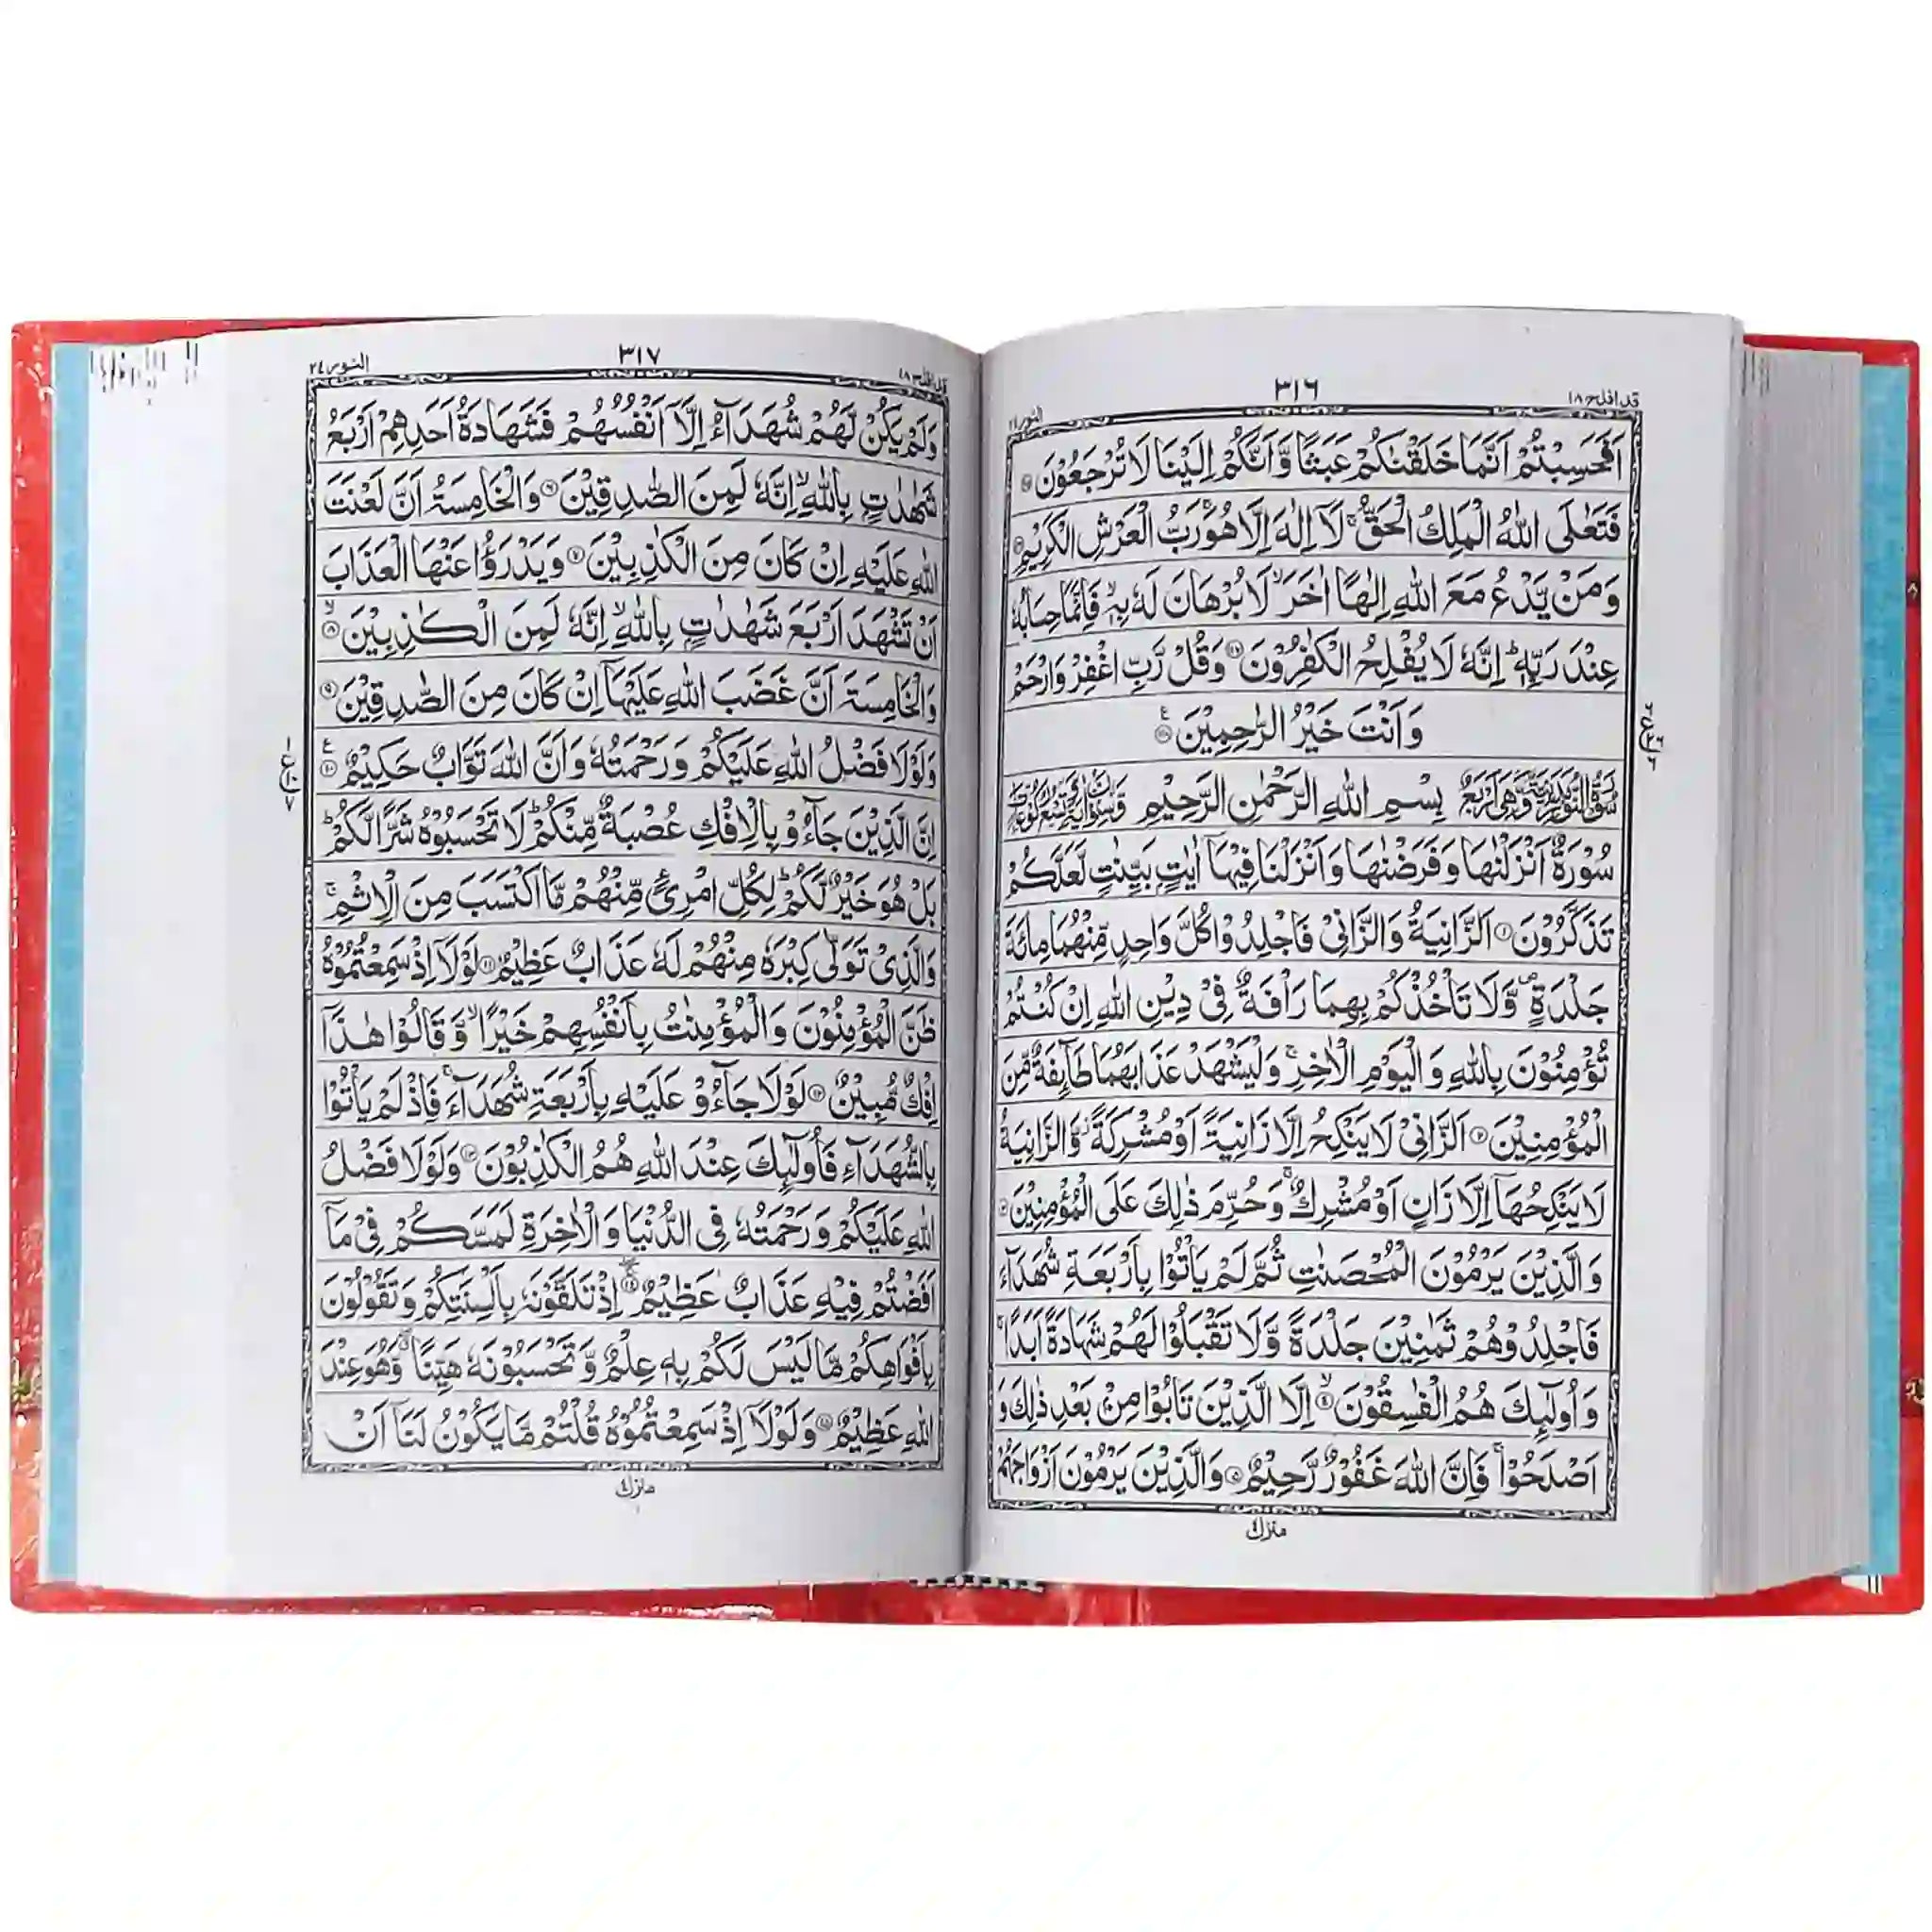 قد افلح ١٨
٣١٦
اَفَحَسِبْتُمْ اَنَّمَا خَلَقْنٰكُمْ عَبَثًا وَّاَنَّكُمْ اِلَيْنَا لَا تُرْجَعُوْنَ ۝۱۱۵
فَتَعٰلَى اللّٰهُ الْمَلِكُ الْحَقُّ ۚ لَاۤ اِلٰهَ اِلَّا هُوَ ۚ رَبُّ الْعَرْشِ الْكَرِيْمِ ۝۱۱۶
وَمَنْ يَّدْعُ مَعَ اللّٰهِ اِلٰهًا اٰخَرَ ۙ لَا بُرْهَانَ لَهٗ بِهٖ ۙ فَاِنَّمَا حِسَابُهٗ
عِنْدَ رَبِّهٖ ؕ اِنَّهٗ لَا يُفْلِحُ الْكٰفِرُوْنَ ۝۱۱۷ وَقُلْ رَّبِّ اغْفِرْ وَارْحَمْ
وَاَنْتَ خَيْرُ الرّٰحِمِيْنَ ۝۱۱۸
بِسْمِ اللّٰهِ الرَّحْمٰنِ الرَّحِيْمِ
سُوْرَةٌ اَنْزَلْنٰهَا وَفَرَضْنٰهَا وَاَنْزَلْنَا فِيْهَاۤ اٰيٰتٍۭ بَيِّنٰتٍ لَّعَلَّكُمْ
تَذَكَّرُوْنَ ۝۱ اَلزَّانِيَةُ وَالزَّانِيْ فَاجْلِدُوْا كُلَّ وَاحِدٍ مِّنْهُمَا مِائَةَ
جَلْدَةٍ ۪ وَّلَا تَاْخُذْكُمْ بِهِمَا رَاْفَةٌ فِيْ دِيْنِ اللّٰهِ اِنْ كُنْتُمْ
تُؤْمِنُوْنَ بِاللّٰهِ وَالْيَوْمِ الْاٰخِرِ ۚ وَلْيَشْهَدْ عَذَابَهُمَا طَآئِفَةٌ مِّنَ
الْمُؤْمِنِيْنَ ۝۲ اَلزَّانِيْ لَا يَنْكِحُ اِلَّا زَانِيَةً اَوْ مُشْرِكَةً ۫ وَّالزَّانِيَةُ
لَا يَنْكِحُهَاۤ اِلَّا زَانٍ اَوْ مُشْرِكٌ ۚ وَحُرِّمَ ذٰلِكَ عَلَى الْمُؤْمِنِيْنَ ۝۳
وَالَّذِيْنَ يَرْمُوْنَ الْمُحْصَنٰتِ ثُمَّ لَمْ يَاْتُوْا بِاَرْبَعَةِ شُهَدَآءَ
فَاجْلِدُوْهُمْ ثَمٰنِيْنَ جَلْدَةً وَّلَا تَقْبَلُوْا لَهُمْ شَهَادَةً اَبَدًا ۚ
وَاُولٰٓئِكَ هُمُ الْفٰسِقُوْنَ ۙ۝۴ اِلَّا الَّذِيْنَ تَابُوْا مِنْۢ بَعْدِ ذٰلِكَ وَ
اَصْلَحُوْا ۚ فَاِنَّ اللّٰهَ غَفُوْرٌ رَّحِيْمٌ ۝۵ وَالَّذِيْنَ يَرْمُوْنَ اَزْوَاجَهُمْ
منزل ٤
قد افلح ١٨
٣١٧
النور ٢٤
وَلَمْ يَكُنْ لَّهُمْ شُهَدَآءُ اِلَّاۤ اَنْفُسُهُمْ فَشَهَادَةُ اَحَدِهِمْ اَرْبَعُ
شَهٰدٰتٍۭ بِاللّٰهِ ۙ اِنَّهٗ لَمِنَ الصّٰدِقِيْنَ ۝۶ وَالْخَامِسَةُ اَنَّ لَعْنَتَ
اللّٰهِ عَلَيْهِ اِنْ كَانَ مِنَ الْكٰذِبِيْنَ ۝۷ وَيَدْرَؤُا عَنْهَا الْعَذَابَ
اَنْ تَشْهَدَ اَرْبَعَ شَهٰدٰتٍۭ بِاللّٰهِ ۙ اِنَّهٗ لَمِنَ الْكٰذِبِيْنَ ۙ۝۸
وَالْخَامِسَةَ اَنَّ غَضَبَ اللّٰهِ عَلَيْهَاۤ اِنْ كَانَ مِنَ الصّٰدِقِيْنَ ۝۹
وَلَوْلَا فَضْلُ اللّٰهِ عَلَيْكُمْ وَرَحْمَتُهٗ وَاَنَّ اللّٰهَ تَوَّابٌ حَكِيْمٌ ۝۱۰
اِنَّ الَّذِيْنَ جَآءُوْ بِالْاِفْكِ عُصْبَةٌ مِّنْكُمْ ؕ لَا تَحْسَبُوْهُ شَرًّا لَّكُمْ ؕ
بَلْ هُوَ خَيْرٌ لَّكُمْ ؕ لِكُلِّ امْرِئٍ مِّنْهُمْ مَّا اكْتَسَبَ مِنَ الْاِثْمِ ۚ
وَالَّذِيْ تَوَلّٰى كِبْرَهٗ مِنْهُمْ لَهٗ عَذَابٌ عَظِيْمٌ ۝۱۱ لَوْلَاۤ اِذْ سَمِعْتُمُوْهُ
ظَنَّ الْمُؤْمِنُوْنَ وَالْمُؤْمِنٰتُ بِاَنْفُسِهِمْ خَيْرًا ۙ وَّقَالُوْا هٰذَاۤ
اِفْكٌ مُّبِيْنٌ ۝۱۲ لَوْلَا جَآءُوْ عَلَيْهِ بِاَرْبَعَةِ شُهَدَآءَ ۚ فَاِذْ لَمْ يَاْتُوْا
بِالشُّهَدَآءِ فَاُولٰٓئِكَ عِنْدَ اللّٰهِ هُمُ الْكٰذِبُوْنَ ۝۱۳ وَلَوْلَا فَضْلُ
اللّٰهِ عَلَيْكُمْ وَرَحْمَتُهٗ فِي الدُّنْيَا وَالْاٰخِرَةِ لَمَسَّكُمْ فِيْ مَاۤ
اَفَضْتُمْ فِيْهِ عَذَابٌ عَظِيْمٌ ۝۱۴ اِذْ تَلَقَّوْنَهٗ بِاَلْسِنَتِكُمْ وَتَقُوْلُوْنَ
بِاَفْوَاهِكُمْ مَّا لَيْسَ لَكُمْ بِهٖ عِلْمٌ وَّتَحْسَبُوْنَهٗ هَيِّنًا ۖ وَّهُوَ عِنْدَ
اللّٰهِ عَظِيْمٌ ۝۱۵ وَلَوْلَاۤ اِذْ سَمِعْتُمُوْهُ قُلْتُمْ مَّا يَكُوْنُ لَنَاۤ اَنْ
منزل ٤